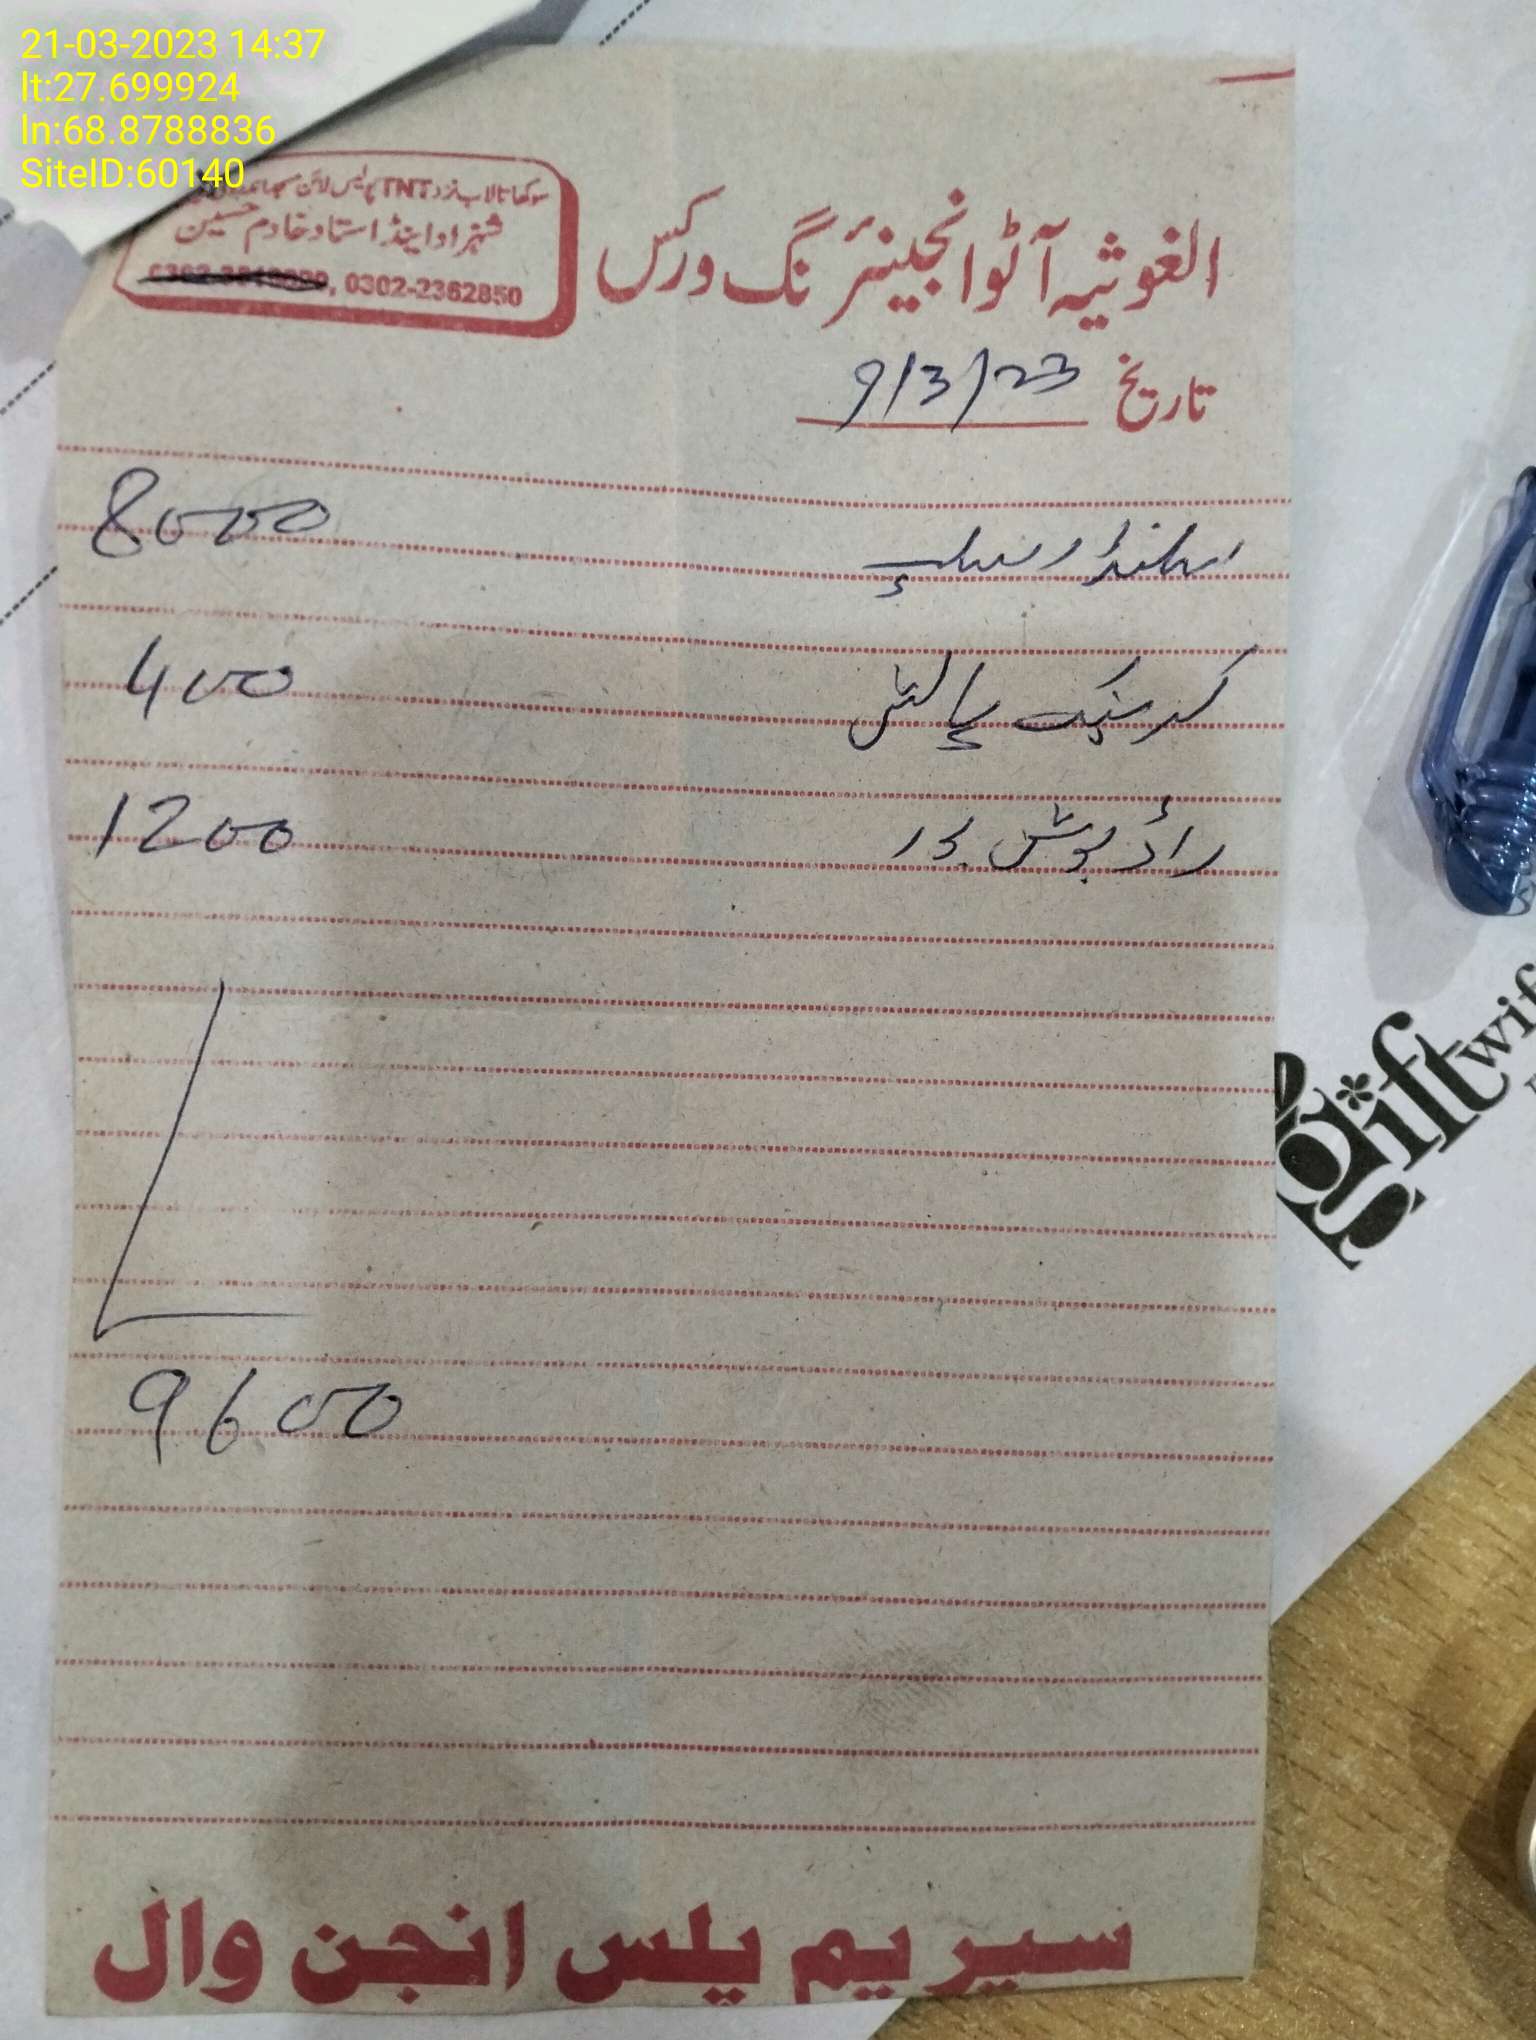 21-03-2023 14:37
lt:27.699924
ln:68.8788836
SiteID:60140
سوکھا تالاب نزد TNT پولیس لائن
شہزادو اینڈ استاد خادم حسین
0302-2362850
الغوثیہ آٹو انجینئرنگ ورکس
تاریخ 9/3/23
8000
کرینک پالش 400
راڈ بوش بور 1200
9600
سپریم پلس انجن وال
gift
wif